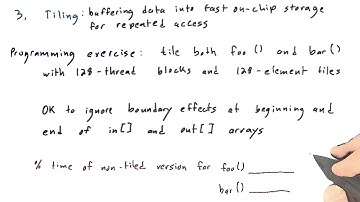 3. Tiling: buffering data into fast on-chip storage
for repeated access
Programming exercise: tile both foo() and bar()
with 128-thread blocks and 128-element tiles
OK to ignore boundary effects at beginning and
end of in[] and out[] arrays
% time of non-tiled version for foo()
bar()